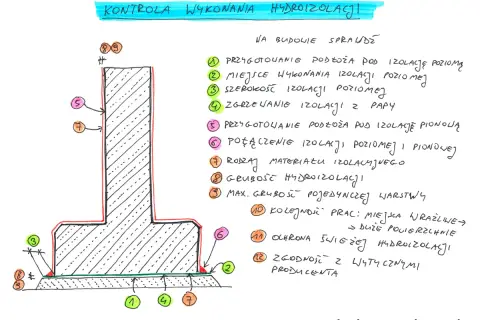 KONTROLA WYKONANIA HYDROIZOLACJI
NA BUDOWIE SPRAWDŹ
1 PRZYGOTOWANIE PODŁOŻA POD IZOLACJĘ POZIOMĄ
2 MIEJSCE WYKONANIA IZOLACJI POZIOMEJ
3 SZEROKOŚĆ IZOLACJI POZIOMEJ
4 ZGRZEWANIE IZOLACJI Z PAPY
5 PRZYGOTOWANIE PODŁOŻA POD IZOLACJĘ PIONOWĄ
6 POŁĄCZENIE IZOLACJI POZIOMEJ I PIONOWEJ
7 RODZAJ MATERIAŁU IZOLACYJNEGO
8 GRUBOŚĆ HYDROIZOLACJI
9 MAX. GRUBOŚĆ POJEDYNCZEJ WARSTWY
10 KOLEJNOŚĆ PRAC: MIEJSCA WRAŻLIWE →
→ DUŻE POWIERZCHNIE
11 OCHRONA ŚWIEŻEJ HYDROIZOLACJI
12 ZGODNOŚĆ Z WYTYCZNYMI
PRODUCENTA
8 9
5
7
3
6
2
8
9
1 4 7